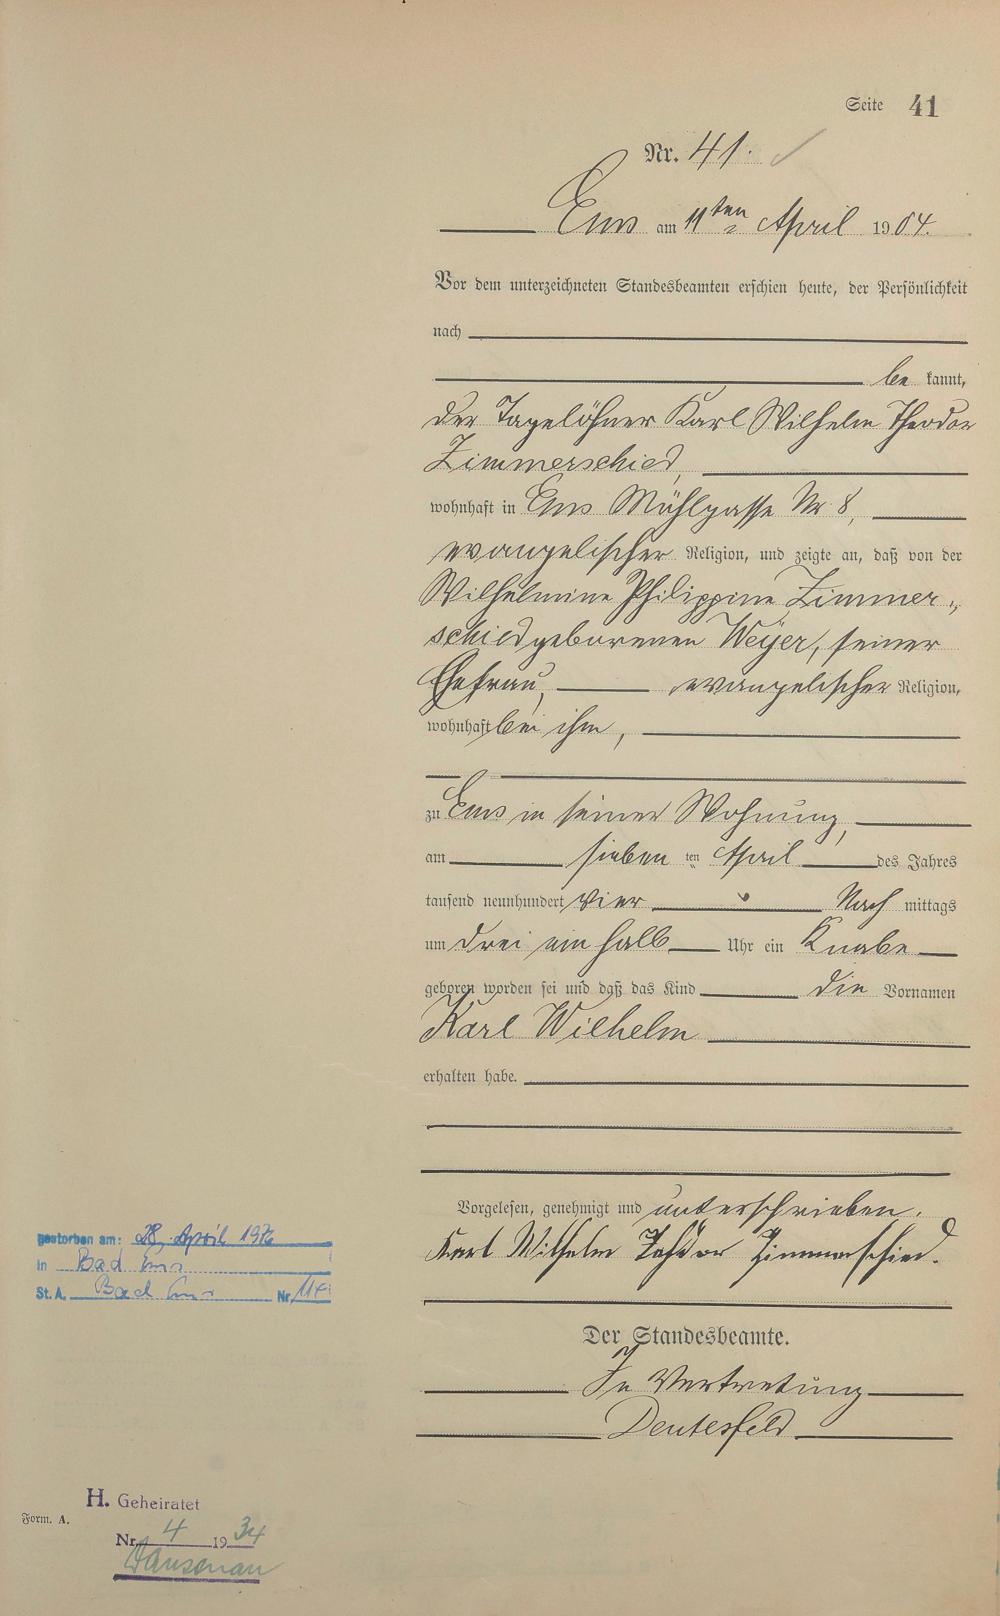 Seite 41
Nr. 41.
Ems am 11ten April 1904.
Vor dem unterzeichneten Standesbeamten erschien heute, der Persönlichkeit
nach
be kannt,
der Tagelöhner Karl Wilhelm Theodor
Zimmerschied,
wohnhaft in Ems Mühlgasse Nr 8,
evangelischer Religion, und zeigte an, daß von der
Wilhelmine Philippine Zimmer„
schied geborenen Weyer, seiner
Ehefrau, evangelischer Religion,
wohnhaft bei ihm,
zu Ems in seiner Wohnung,
am sieben ten April des Jahres
tausend neunhundert vier Nach mittags
um drei ein halb Uhr ein Knabe
geboren worden sei und daß das Kind die Vornamen
Karl Wilhelm
erhalten habe.
Vorgelesen, genehmigt und unterschrieben.
Karl Wilhelm Zimmerschied.
Der Standesbeamte.
In Vertretung
Deutesfeld
gestorben am: 28. April
in Bad Ems
St. A. Bad Ems Nr
H. Geheiratet
Form. A.
Nr. 4 1934
Dausenau